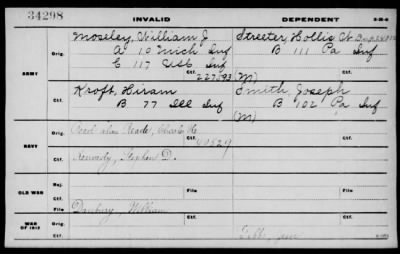 34298
INVALID DEPENDENT
3-2-6
ARMY
Orig. Moseley, William J. Streeter, Hollis W.
A 10 Mich Inf B 111 Pa Inf
C 117 USC Inf
227,93 (M)
Ctf. Kroft, Hiram Smith, Joseph
B 77 Ill Inf B 102 Pa Inf
(M)
NAVY
Orig. alias Reade, Charles Ctf.
40529
Ctf. Kennedy, Stephen D.
OLD WAR
Rej. File Ctf.
Ctf.
File Danbury, William File
WAR OF 1812
Orig. Ctf.
Ctf.